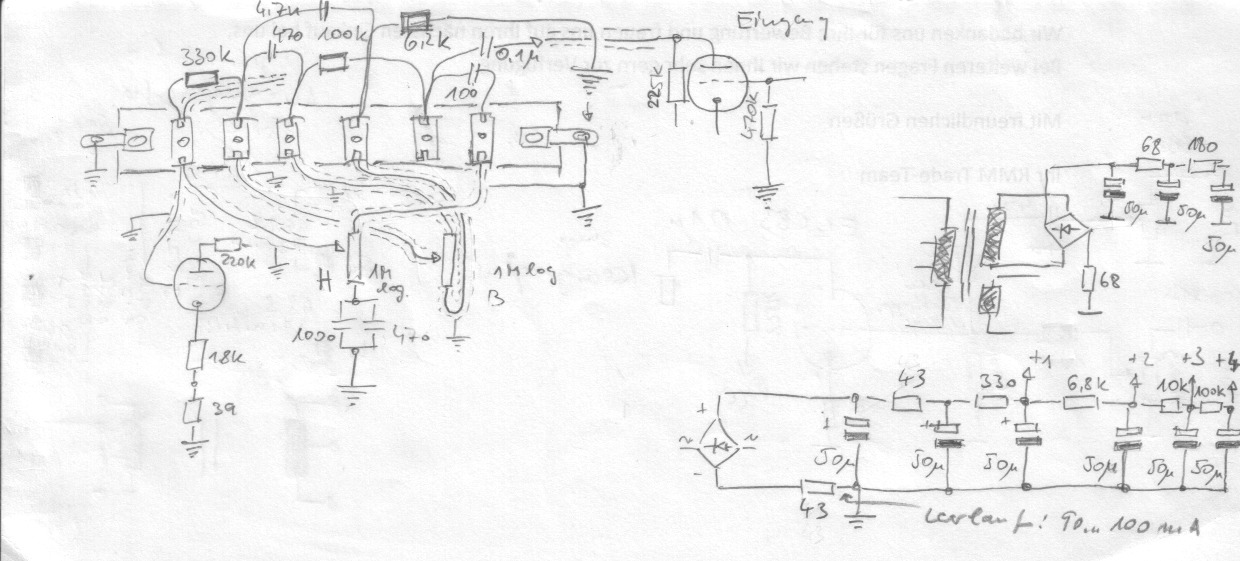 4,7n
470
100k
330k
6,2k
0,1µ
100
Eingang
225k
470k
220k
18k
39
H
1M
log.
1000
470
1M log
B
68
180
50µ
50µ
50µ
68
43
330
+1
6,8k
+2
10k
+3
100k
+4
+
~
~
-
+
50µ
+
50µ
+
50µ
50µ
50µ
50µ
43
Leerlauf: 90...100mA
Bei weiteren Fragen stehen wir Ihnen sehr gern zur Verfügung
Mit freundlichen Grüßen
Ihr RMM Trade-Team